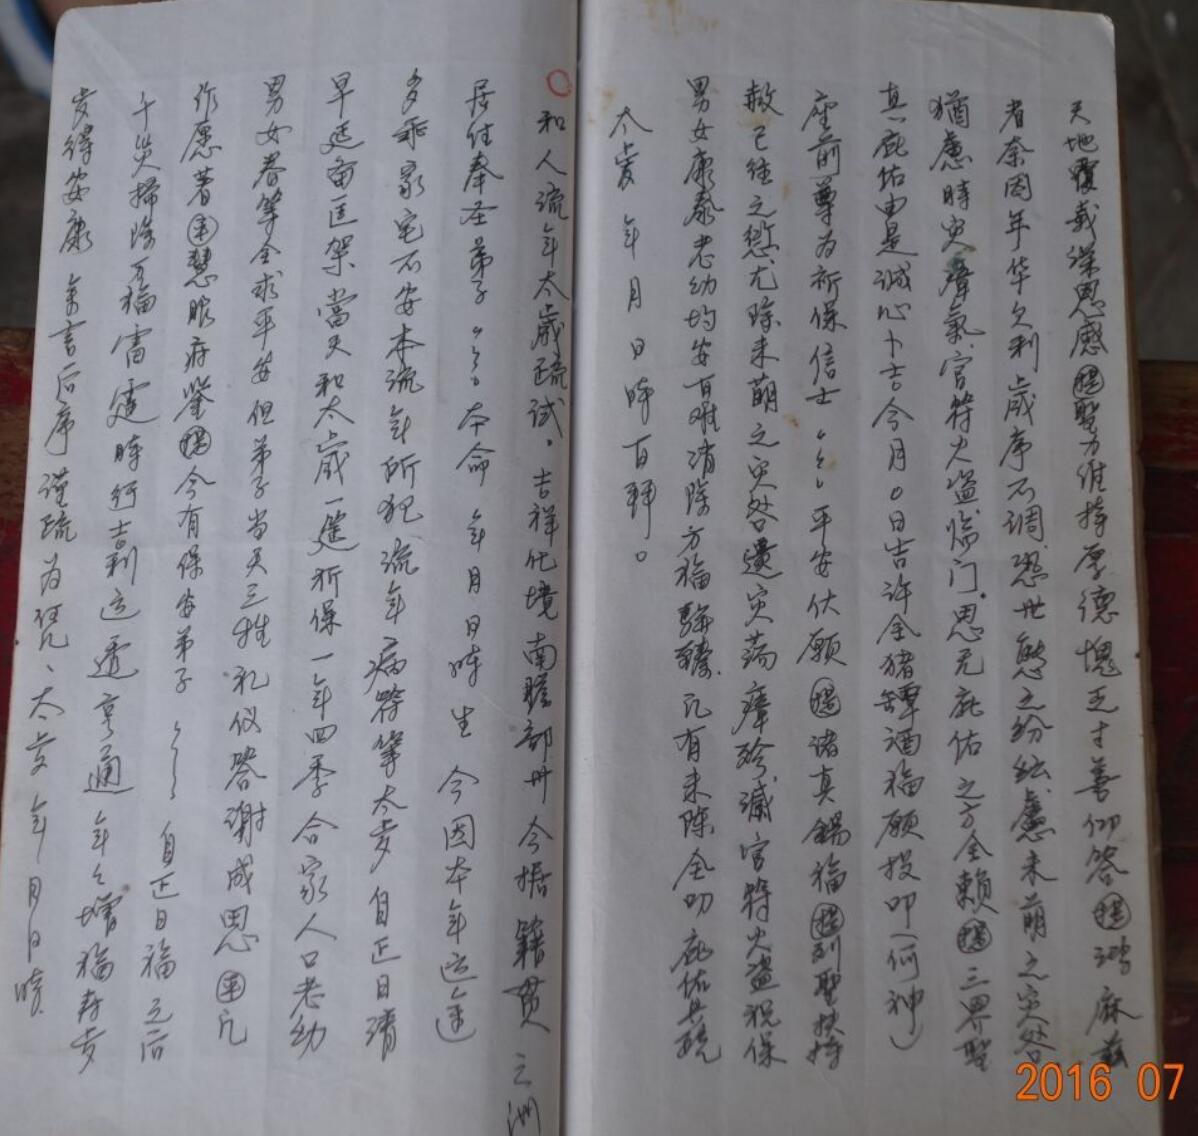 天地覆载深恩感㘣聖力维持厚德愧乏寸善仰答㘣鸿庥兹
者奈因年华欠利歲序不调恐世態之纷纭慮未萌之灾咎
猶慮時灾瘴氣官符火盗临门思无庇佑之方全賴㘣三界聖
真庇佑由是诚心卜吉今月0日吉许全猪罈酒福願投叩(何神)
座前尊为祈保信士〻〻平安伏願㘣诸真錫福㘣列聖扶持
赦已往之愆尤除未萌之灾咎遣灾荡瘴殄滅官符火盗祝保
男女康泰老幼均安百难消除方福駢臻凡有未陈全叨庇佑具疏
太歲 年 月 日 時百拜。
和人流年太歲疏试。吉祥化境南瞻部州今据籍贯 之洲
居住奉圣弟子〻〻本命 年 月 日時生 今因本年运途
多乖家宅不安本流年所犯流年病符等太岁自正日请
早延斋匡架當天和太歲一筵祈保一年四季合家人口老幼
男女眷等全求平安但弟子当天三牲礼仪答谢成恩㘣凡
作愿著㘣慧眼府鉴㘣今有保安弟子〻〻自正日福之后
千災掃除万福雷霆時行吉利运透亨通年々增福寿岁
岁得安康 余言后序謹疏为凭、太岁年 月 日時